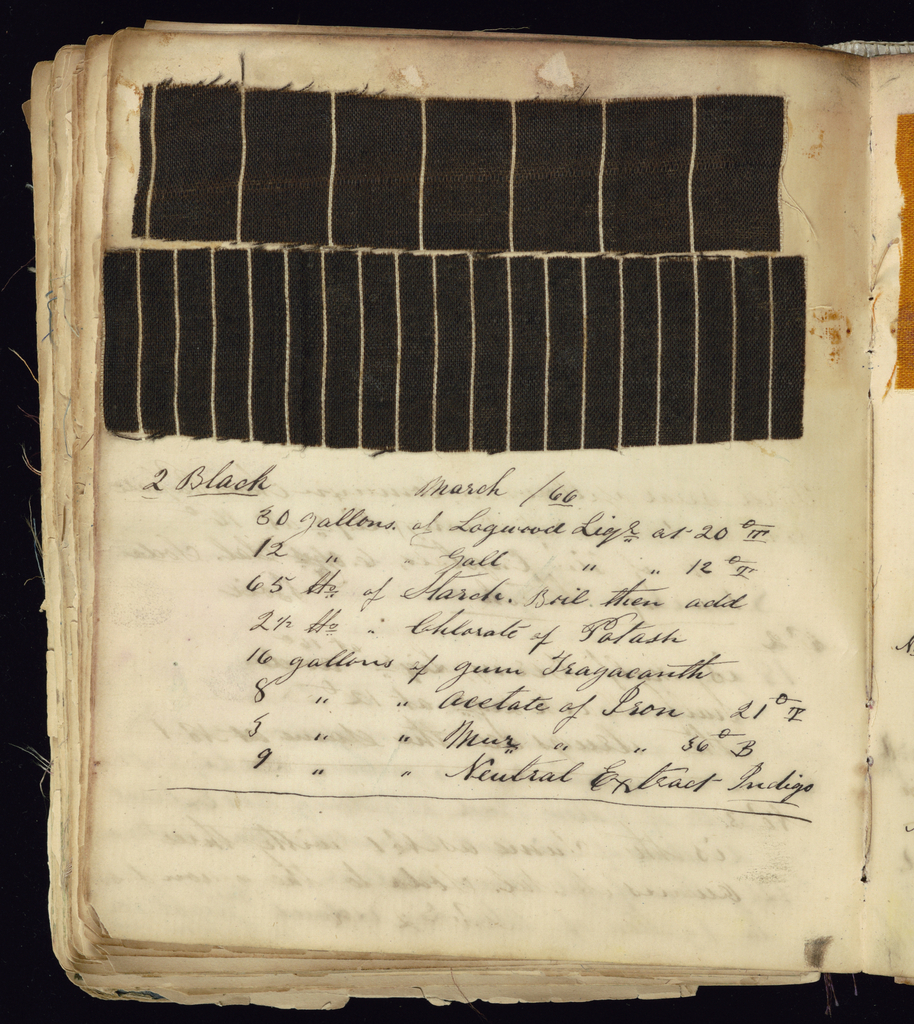 2 Black March /66
30 gallons of Logwood Liqr at 20 °T
12 " " Gall " " 12 °T
65 lb of Starch. Boil then add
2½ lb " Chlorate of Potash
16 gallons of gum Tragacanth
8 " " Acetate of Iron 21 °T
5 " " Mur " " 36 ° B
9 " " Neutral Extract Indigo